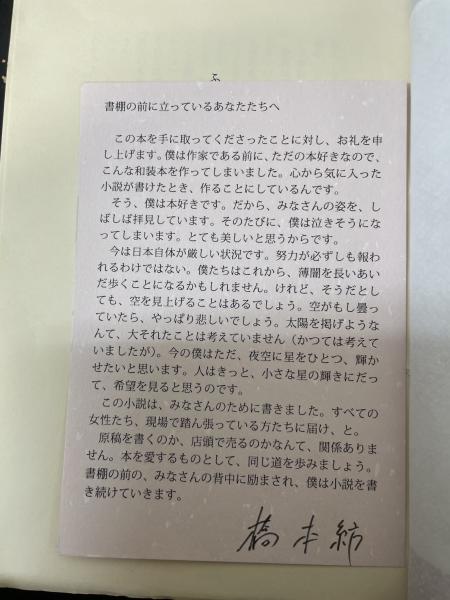 ふ
書棚の前に立っているあなたたちへ
この本を手に取ってくださったことに対し、お礼を申
し上げます。僕は作家である前に、ただの本好きなので、
こんな和装本を作ってしまいました。心から気に入った
小説が書けたとき、作ることにしているんです。
そう、僕は本好きです。だから、みなさんの姿を、し
ばしば拝見しています。そのたびに、僕は泣きそうにな
ってしまいます。とても美しいと思うからです。
今は日本自体が厳しい状況です。努力が必ずしも報わ
れるわけではない。僕たちはこれから、薄闇を長いあい
だ歩くことになるかもしれません。けれど、そうだとし
ても、空を見上げることはあるでしょう。空がもし曇っ
ていたら、やっぱり悲しいでしょう。太陽を掲げような
んて、大それたことは考えていません（かつては考えて
いましたが）。今の僕はただ、夜空に星をひとつ、輝か
せたいと思います。人はきっと、小さな星の輝きにだっ
て、希望を見ると思うのです。
この小説は、みなさんのために書きました。すべての
女性たち、現場で踏ん張っている方たちに届け、と。
原稿を書くのか、店頭で売るのかなんて、関係ありま
せん。本を愛するものとして、同じ道を歩みましょう。
書棚の前の、みなさんの背中に励まされ、僕は小説を書
き続けていきます。
橋本紡